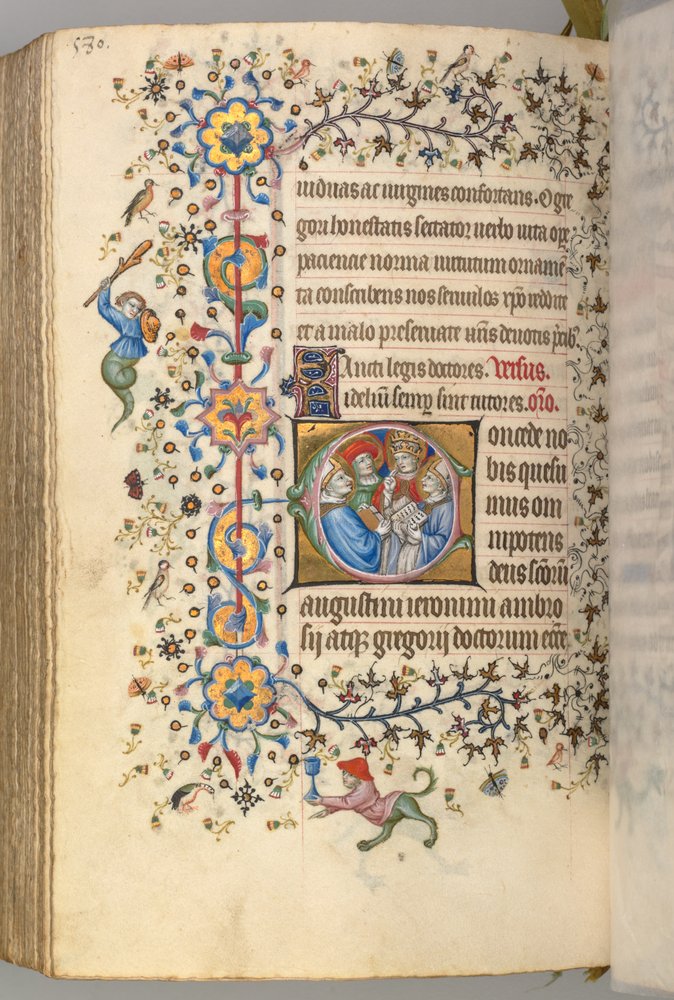 580.
uiduas ac uirgines confortans. O gre
gori honestatis sectator uerbo uita ope
paciencie norma uirtutum orname
ta conscribens nos seruulos xpo reddite
et a malo preseruate uris deuotis prcib
Sancti legis doctores. Versus.
Fideliu semp sint tutores. oro.
Concede no
bis quesu
mus om
nipotens
deus scoru
augustini ieronimi ambro
sij atq gregorij doctorum ecce